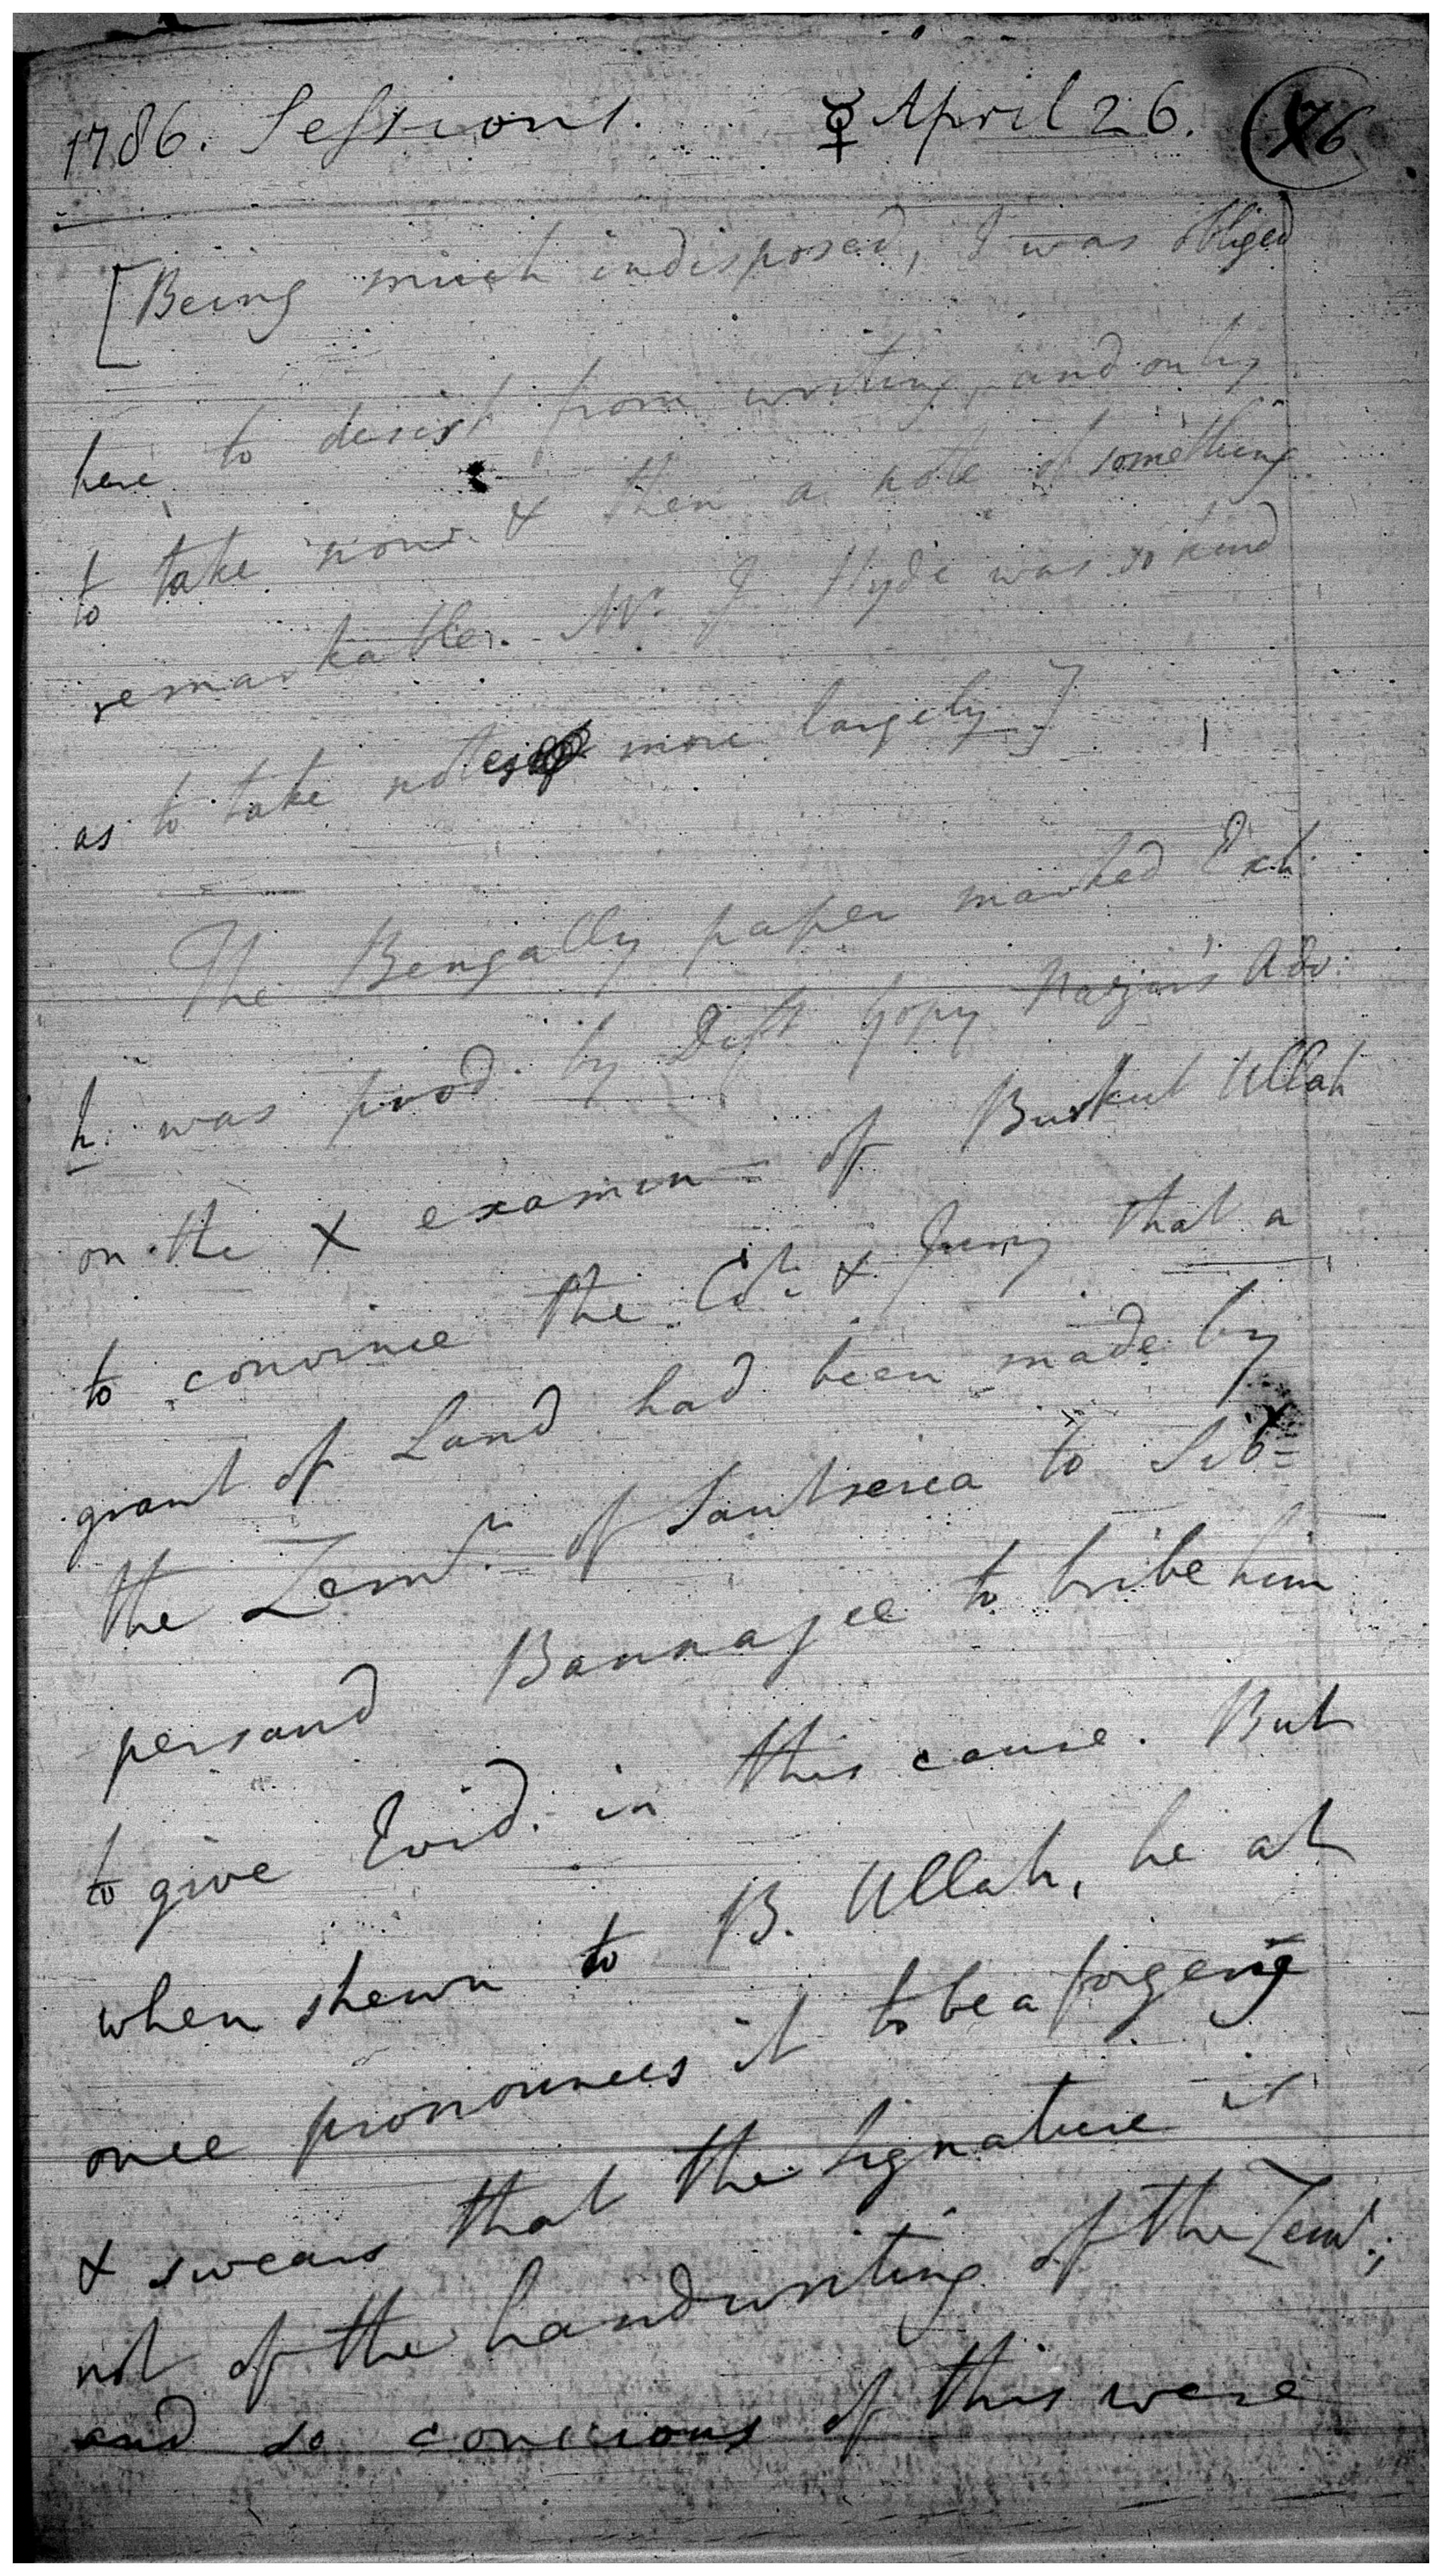 1786. Sessions. ☿ April 26. 76
[Being much indisposed, I was obliged
here to desist from writing, and only
to take now & then a note of something
remarkable. Mr. J. Hyde was so kind
as to take notes more largely.]
The Bengally paper marked Exh.
h. was prod. by Deft Gopy Nazir's Adv:
on the X examin= of Burkut Ullah
to convince the Ct. & Jury that a
grant of Land had been made by
the Zemr. of Santseria to Sib=
persaud Bannajee to bribe him
to give Evid. in this cause. But
when shewn to B. Ullah, he at
once pronounces it to be a forgery
& swears that the signature is
not of the handwriting of the Zemr.;
and so concious of this were